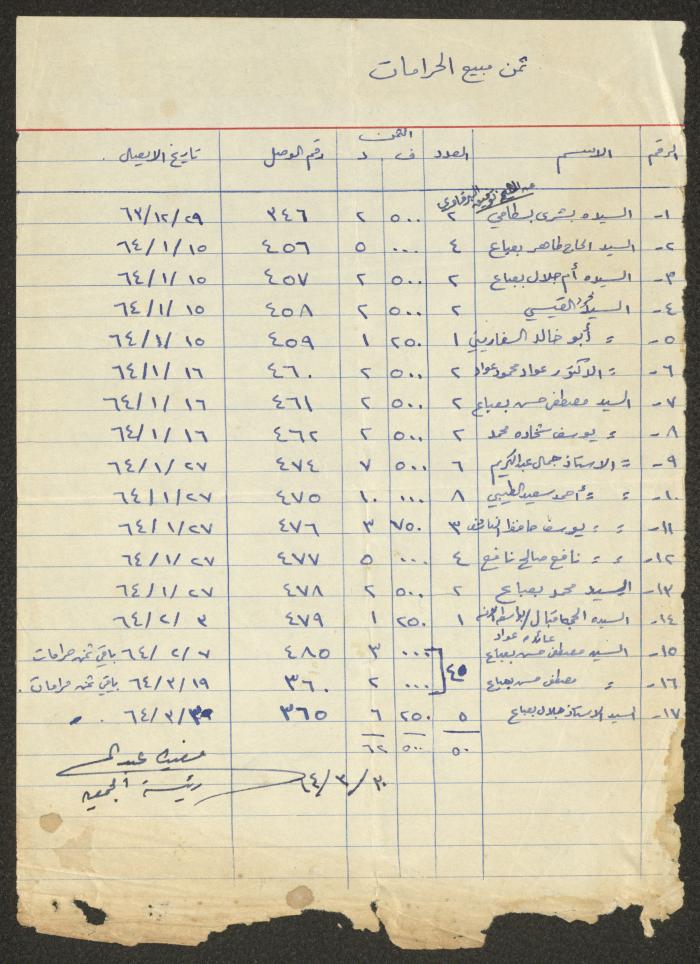 ثمن مبيع الحرامات
الرقم الاسم العدد الثمن ف. د رقم الوصل تاريخ الايصال
١- السيده بشرى بسطامي ٢ ٥٠٠ ٢ ٣٤٦ ٦٣/١٢/٢٩
٢- السيد الحاج طاهر بعباع ٤ ٠٠٠ ٥ ٤٥٦ ٦٤/١/١٥
٣- السيده أم جلال بعباع ٢ ٥٠٠ ٢ ٤٥٧ ٦٤/١/١٥
٤- السيد القيسي ٢ ٥٠٠ ٢ ٤٥٨ ٦٤/١/١٥
٥- = أبو خالد السفاريني ١ ٢٥٠ ١ ٤٥٩ ٦٤/١/١٥
٦- = الدكتور عواد محمود عواد ٢ ٥٠٠ ٢ ٤٦٠ ٦٤/١/١٦
٧- السيد مصطفى حسن بعباع ٢ ٥٠٠ ٢ ٤٦١ ٦٤/١/١٦
٨- = يوسف شحاده محمد ٢ ٥٠٠ ٢ ٤٦٢ ٦٤/١/١٦
٩- = الاستاذ جمال عبدالكريم ٦ ٥٠٠ ٧ ٤٧٤ ٦٤/١/٢٧
١٠- = = أحمد سعيد الطيبي ٨ ٠٠٠ ١٠ ٤٧٥ ٦٤/١/٢٧
١١- = = يوسف حافظ ٣ ٧٥٠ ٣ ٤٧٦ ٦٤/١/٢٧
١٢- = = نافع صالح نافع ٤ ٠٠٠ ٥ ٤٧٧ ٦٤/١/٢٧
١٣- السيد محمد بعباع ٢ ٥٠٠ ٢ ٤٧٨ ٦٤/١/٢٧
١٤- السيده ١ ٢٥٠ ١ ٤٧٩ ٦٤/٢/٣
عواد
١٥- السيد مصطفى حسن بعباع ٤٥ ٠٠٠ ٣ ٤٨٥ ٦٤/٢/٧ باقي ثمن حرامات
١٦- = مصطفى حسن بعباع ٠٠٠ ٢ ٣٦٠ ٦٤/٣/١٩ باقي ثمن حرامات.
١٧- السيد الاستاذ جلال بعباع ٥ ٢٥٠ ٦ ٣٦٥ ٦٤/٣/
٥٠ ٥٠٠ ٦٢
٦٤/٣/٣٠
رئيسة الجمعيه